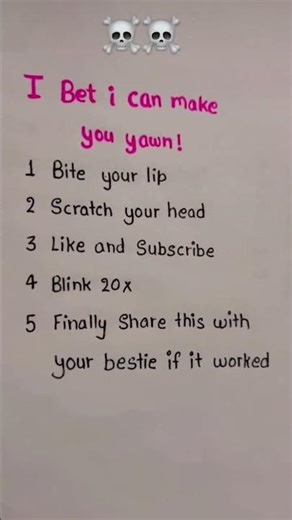 I Bet i can make
you yawn!
1 Bite your lip
2 Scratch your head
3 Like and Subscribe
4 Blink 20x
5 Finally Share this with
your bestie if it worked